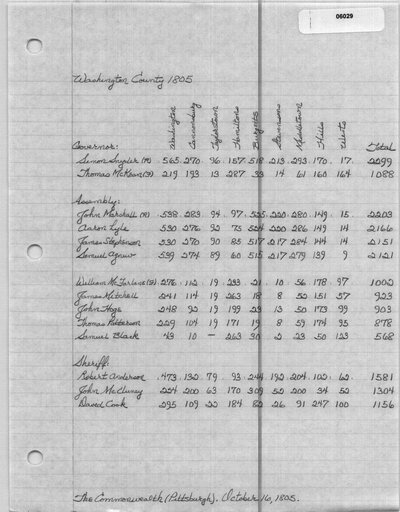 06029
Washington County 1805
Washington Canonsburg Taylorstown Hamiltons Burgetts Stevensons Middletown Hills
Governor: Total
Simon Snyder (R) 565 270 96 157 518 213 293 170 17 2299
Thomas McKean 219 193 13 287 33 14 61 160 164 1088
Assembly:
John Marshall (R) 538 283 94 97 525 220 280 149 15 2203
Aaron Lyle 530 276 92 75 524 220 286 149 14 2166
James Stephenson 530 270 90 85 517 217 284 144 14 2151
Samuel Agnew 539 274 89 60 515 217 279 139 9 2121
William McFarlane 276 112 19 233 21 10 56 178 97 1002
James Mitchell 241 114 19 263 18 8 52 151 57 923
John Hoge 248 92 19 199 23 13 50 173 99 903
Thomas Patterson 229 104 19 171 19 8 59 174 95 878
Samuel Black 43 10 — 263 30 2 23 50 123 568
Sheriff:
Robert Anderson 473 132 79 93 244 192 204 102 62 1581
John McCluney 224 200 63 170 309 52 200 34 52 1304
David Cook 295 109 22 184 82 26 91 247 100 1156
The Commonwealth (Pittsburgh). October 16, 1805.